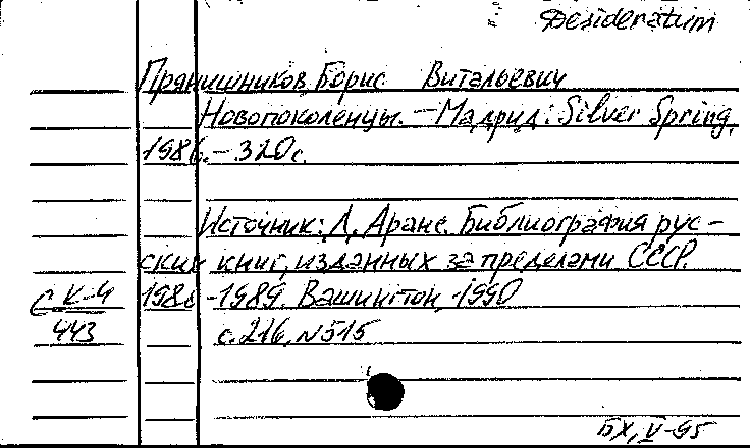 Desideratum
Прянишников Борис Витальевич
Новопоколенцы. — Мадрид: Silver Spring,
1986. — 320 с.
Источник: Л. Аранс. Библиография рус-
ских книг, изданных за пределами СССР.
С К-4 198 -1989. Вашингтон, 1990
443 с. 216, N 515
БХ, V-95